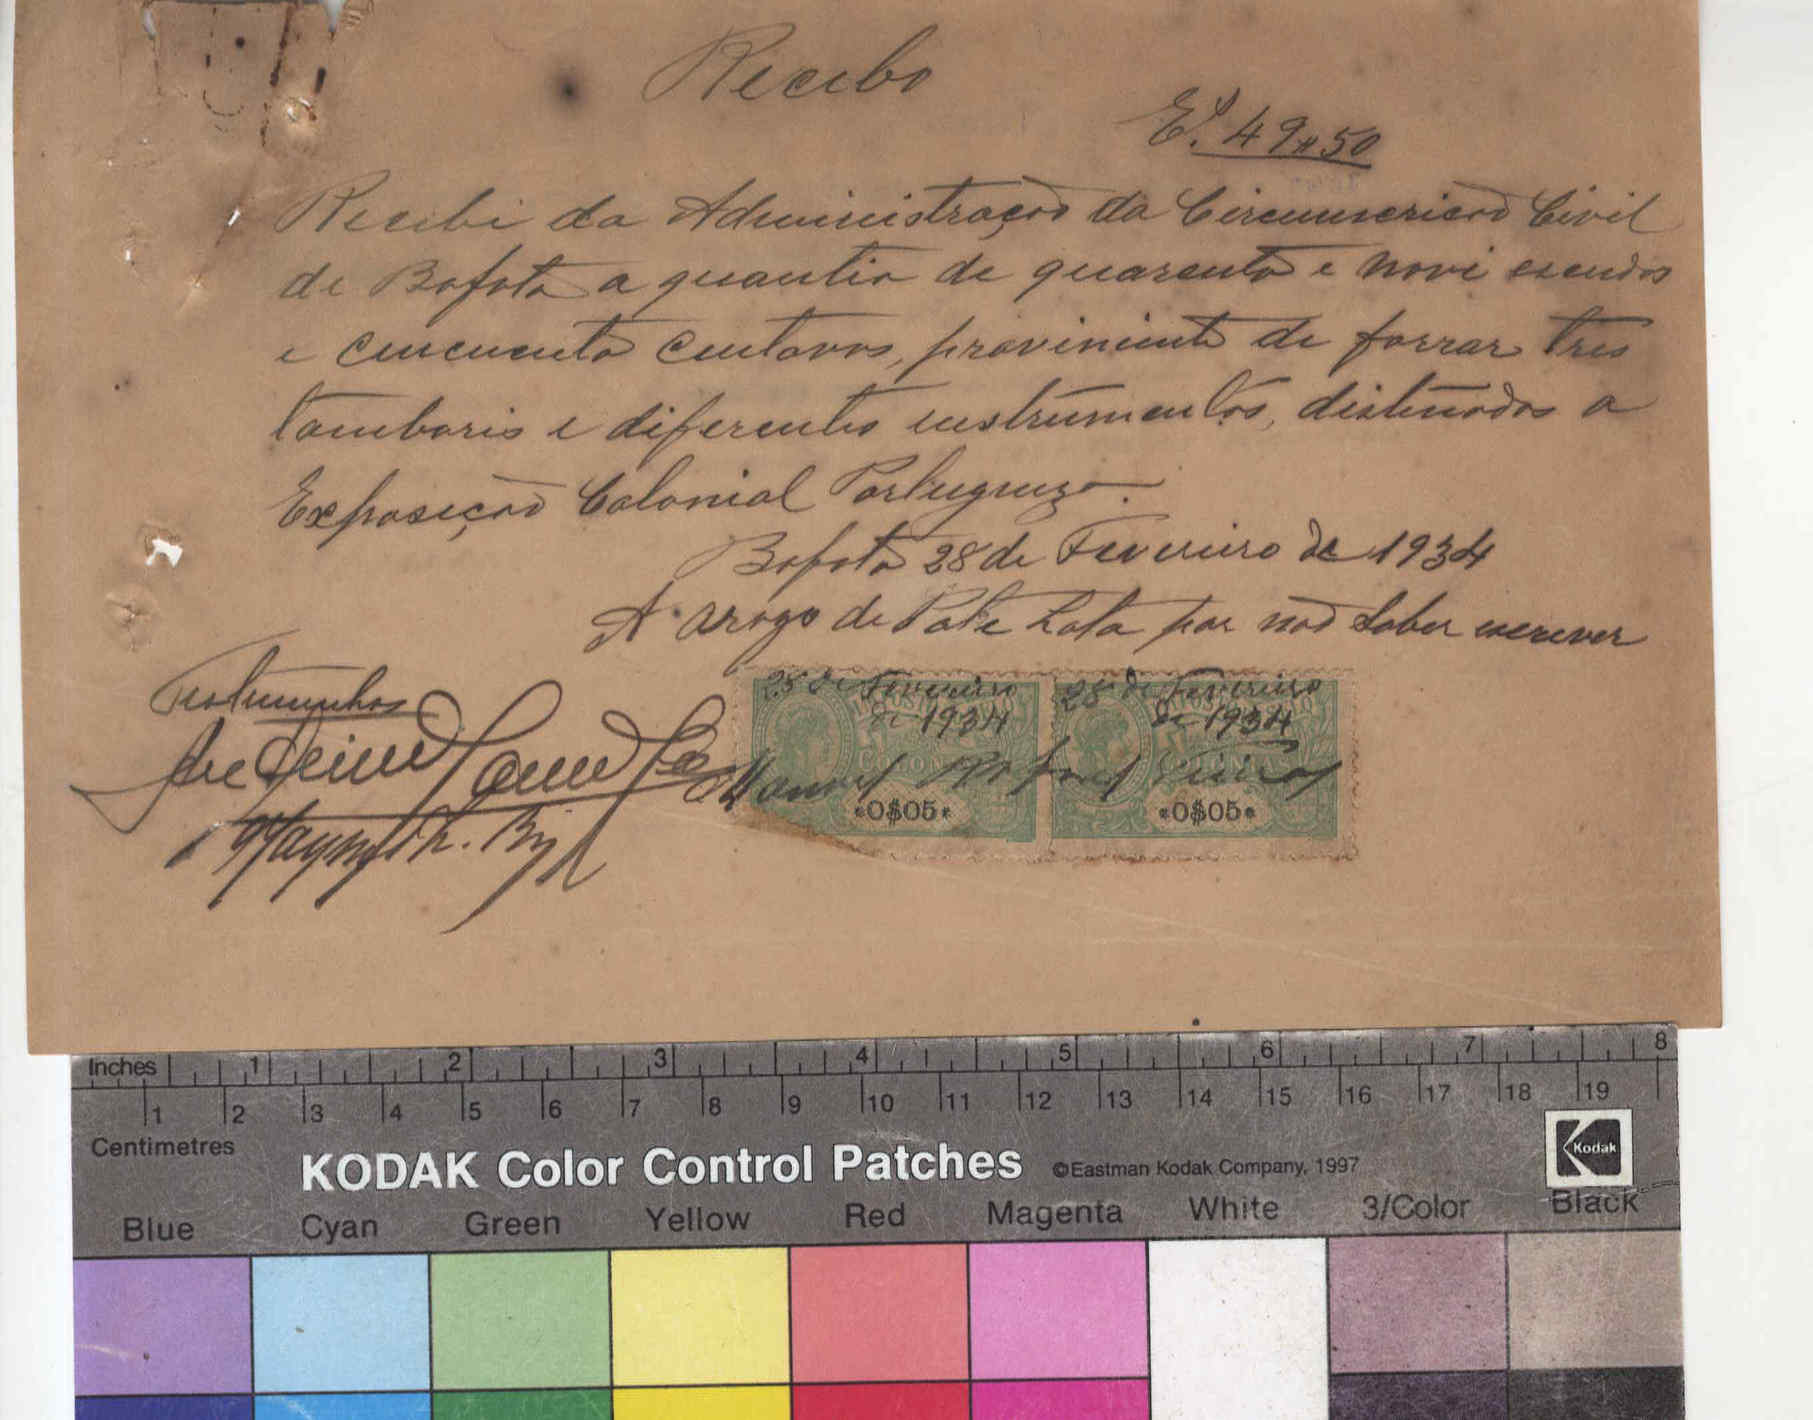 Recibo
E$. 49$50
Recibi da Administração da Circunscrição Civil
de Bafatá a quantia de quarenta e nove escudos
e cincuenta centavos, proviniente de forrar tres
tamboris e diferentes instrumentos, distinados a
Exposição Colonial Portugueza.
Bafatá 28 de Fevereiro de 1934
A arogo de Lata por não saber escrever
Testemunhas
28 de Fevereiro
de 1934
28 de Fevereiro
de 1934
Manuel Rafael
COLONIAS
*0$05*
*0$05*
Inches 1 2 3 4 5 6 7 8
1 2 3 4 5 6 7 8 9 10 11 12 13 14 15 16 17 18 19
Centimetres
KODAK Color Control Patches ©Eastman Kodak Company, 1997 Kodak
Blue Cyan Green Yellow Red Magenta White 3/Color Black